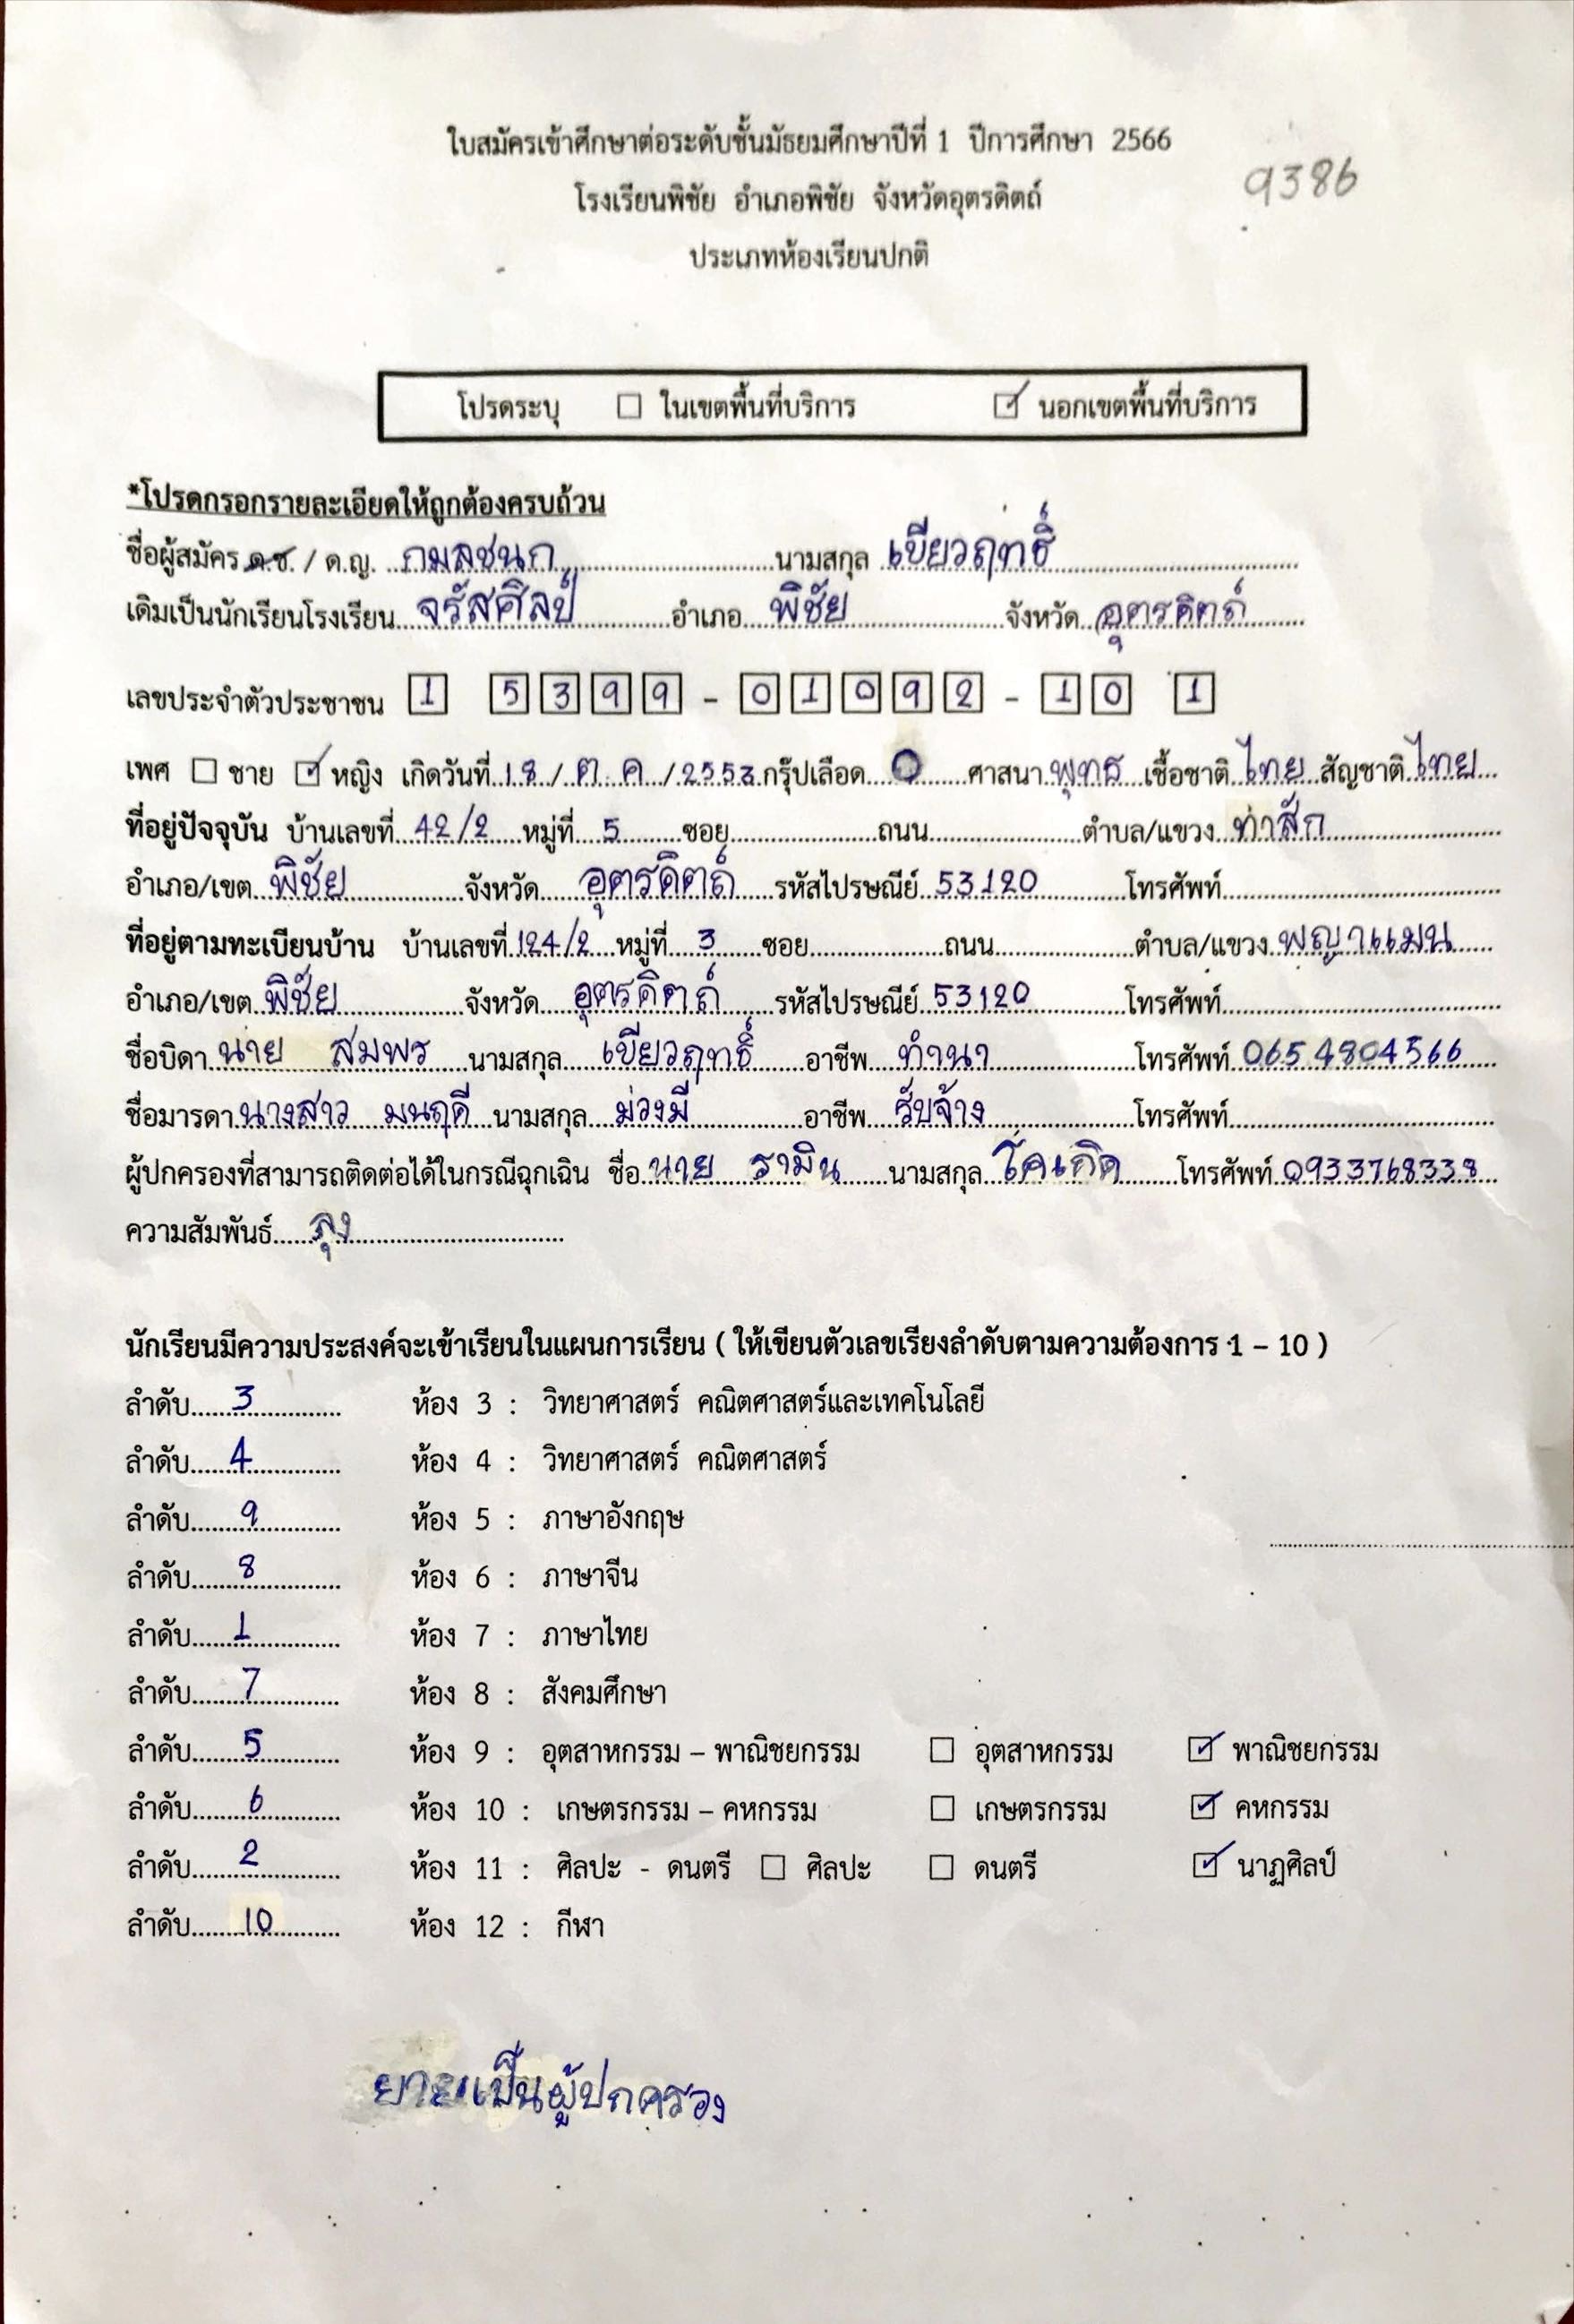 ใบสมัครเข้าศึกษาต่อระดับชั้นมัธยมศึกษาปีที่ 1 ปีการศึกษา 2566
9386
โรงเรียนพิชัย อำเภอพิชัย จังหวัดอุตรดิตถ์
ประเภทห้องเรียนปกติ
โปรดระบุ ☐ ในเขตพื้นที่บริการ ☑ นอกเขตพื้นที่บริการ
*โปรดกรอกรายละเอียดให้ถูกต้องครบถ้วน
ชื่อผู้สมัคร ด.ช. / ด.ญ. กมลชนก นามสกุล เขียวฤทธิ์
เดิมเป็นนักเรียนโรงเรียน จรัสศิลป์ อำเภอ พิชัย จังหวัด อุตรดิตถ์
เลขประจำตัวประชาชน 1 5399-01092-10 1
เพศ ☐ ชาย ☑ หญิง เกิดวันที่ 18 / ต.ค / 2553 กรุ๊ปเลือด O ศาสนา พุทธ เชื้อชาติ ไทย สัญชาติ ไทย
ที่อยู่ปัจจุบัน บ้านเลขที่ 42/2 หมู่ที่ 5 ซอย ถนน ตำบล/แขวง ท่าสัก
อำเภอ/เขต พิชัย จังหวัด อุตรดิตถ์ รหัสไปรษณีย์ 53120 โทรศัพท์
ที่อยู่ตามทะเบียนบ้าน บ้านเลขที่ 124/2 หมู่ที่ 3 ซอย ถนน ตำบล/แขวง พญาแมน
อำเภอ/เขต พิชัย จังหวัด อุตรดิตถ์ รหัสไปรษณีย์ 53120 โทรศัพท์
ชื่อบิดา นาย สมพร นามสกุล เขียวฤทธิ์ อาชีพ ทำนา โทรศัพท์ 0654804566
ชื่อมารดา นางสาว มนฤดี นามสกุล ม่วงมี อาชีพ รับจ้าง โทรศัพท์
ผู้ปกครองที่สามารถติดต่อได้ในกรณีฉุกเฉิน ชื่อ นาย รามิน นามสกุล โคเกิด โทรศัพท์ 0933768338
ความสัมพันธ์ ลุง
นักเรียนมีความประสงค์จะเข้าเรียนในแผนการเรียน ( ให้เขียนตัวเลขเรียงลำดับตามความต้องการ 1 – 10 )
ลำดับ 3 ห้อง 3 : วิทยาศาสตร์ คณิตศาสตร์และเทคโนโลยี
ลำดับ 4 ห้อง 4 : วิทยาศาสตร์ คณิตศาสตร์
ลำดับ 9 ห้อง 5 : ภาษาอังกฤษ
ลำดับ 8 ห้อง 6 : ภาษาจีน
ลำดับ 1 ห้อง 7 : ภาษาไทย
ลำดับ 7 ห้อง 8 : สังคมศึกษา
ลำดับ 5 ห้อง 9 : อุตสาหกรรม – พาณิชยกรรม ☐ อุตสาหกรรม ☑ พาณิชยกรรม
ลำดับ 6 ห้อง 10 : เกษตรกรรม – คหกรรม ☐ เกษตรกรรม ☑ คหกรรม
ลำดับ 2 ห้อง 11 : ศิลปะ - ดนตรี ☐ ศิลปะ ☐ ดนตรี ☑ นาฏศิลป์
ลำดับ 10 ห้อง 12 : กีฬา
ยายเป็นผู้ปกครอง